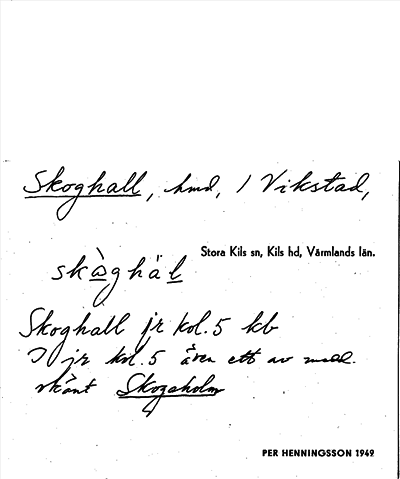 Skoghall, hmd, / Vikstad,
Stora Kils sn, Kils hd, Värmlands län.
skòghäl
Skoghall jr kol. 5 kb
I jr kol. 5 även ett av medd.
skånt Skogaholm
PER HENNINGSSON 1949